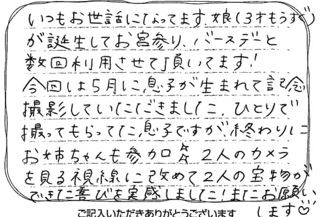 いつもお世話になってます。娘(3才もうすぐ)
が誕生してお宮参り、バースデーと
数回利用させて頂いてます!
今回は5月に息子が生まれて記念
撮影していただきました。ひとりで
撮ってもらってた息子ですが終わりに
お姉ちゃんも参加 2人のカメラ
を見る視線に改めて2人の宝物が
できた喜びを実感しました!またお願い
します♡
ご記入いただきありがとうございます